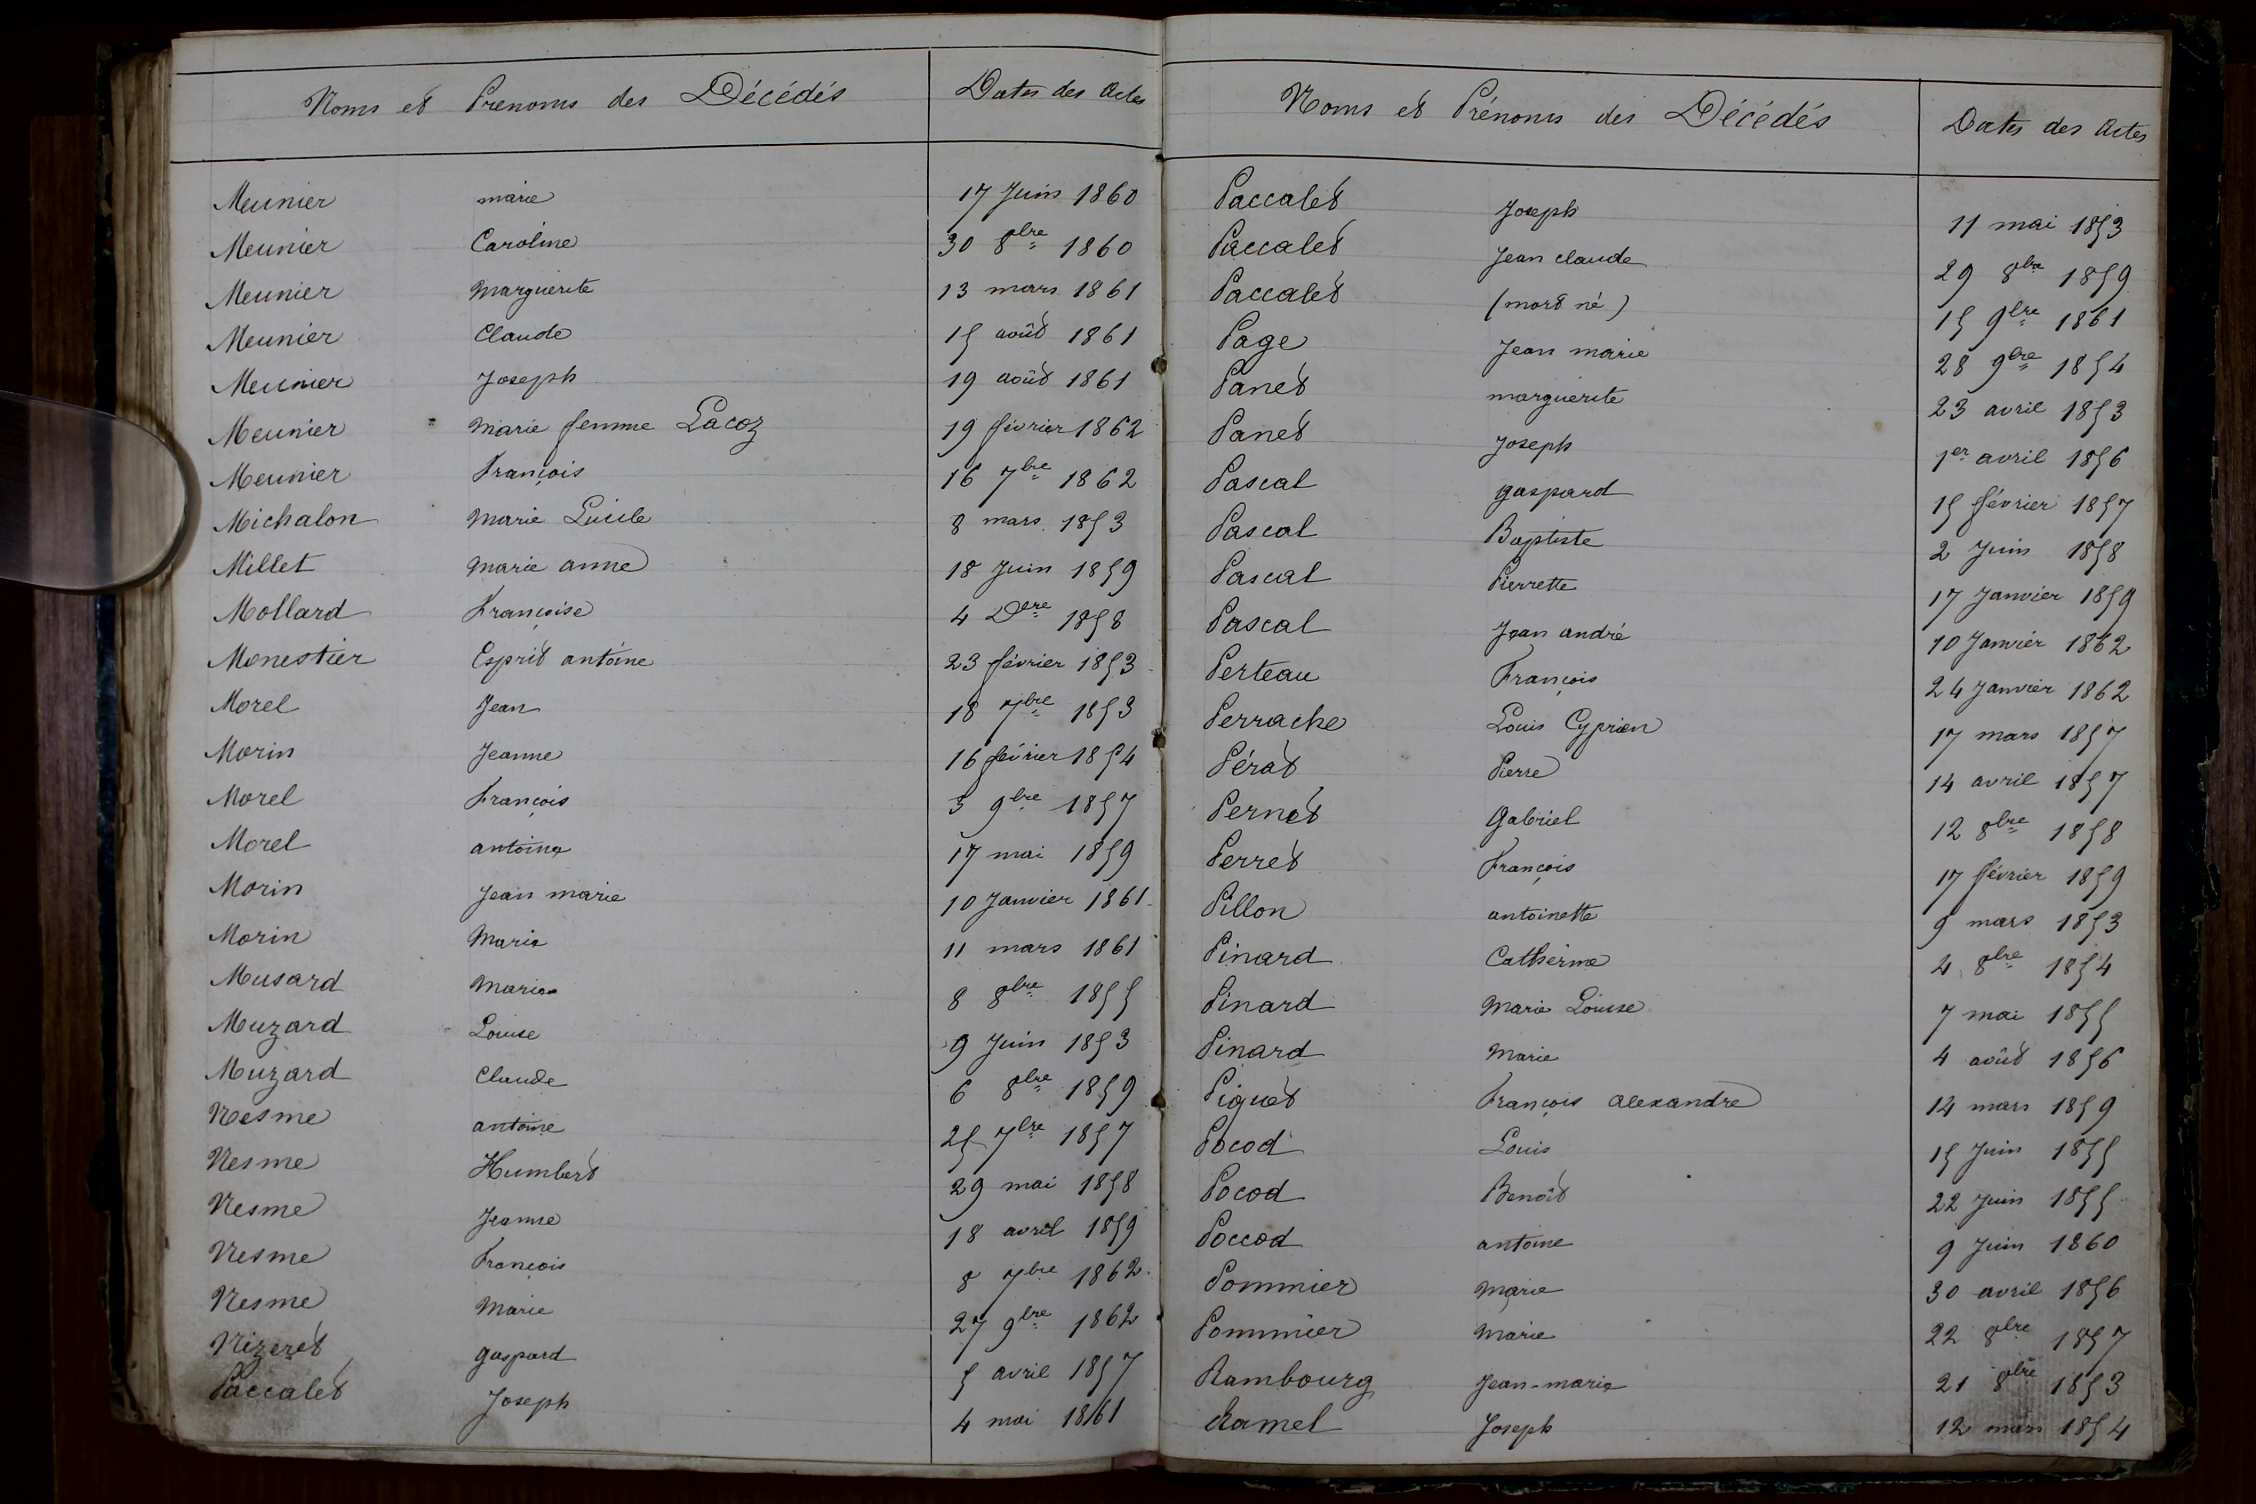 Noms et Prenoms des Décédés Dates des Actes
Meunier marie 17 Juin 1860
Meunier Caroline 30 8bre 1860
Meunier Marguerite 13 mars 1861
Meunier Claude 15 août 1861
Meunier Joseph 19 août 1861
Meunier Marie femme Lacoz 19 février 1862
Meunier François 16 7bre 1862
Michalon Marie Lucile 8 mars 1853
Millet Marie anne 18 Juin 1859
Mollard Françoise 4 Dere 1858
Monestier Esprit antoine 23 février 1853
Morel Jean 18 7bre 1853
Morin Jeanne 16 février 1854
Morel François 3 9bre 1857
Morel antoine 17 mai 1859
Morin Jean marie 10 Janvier 1861
Morin Marie 11 mars 1861
Musard Marie 8 8bre 1855
Muzard Louise 9 Juin 1853
Muzard Claude 6 8bre 1859
Nesme antoine 25 7bre 1857
Nesme Humbert 29 mai 1858
Nesme Jeanne 18 avril 1859
Nesme François 8 7bre 1862
Nesme Marie 27 9bre 1862
Nizeret gaspard 5 avril 1857
Paccalet Joseph 4 mai 1861
Noms et Prénoms des Décédés Dates des Actes
Paccalet Joseph 11 mai 1853
Paccalet Jean claude 29 8bre 1859
Paccalet (mort né) 15 9bre 1861
Page Jean marie 28 9bre 1854
Panet marguerite 23 avril 1853
Panet Joseph 1er avril 1856
Pascal gaspard 15 février 1857
Pascal Baptiste 2 Juin 1858
Pascal Pierrette 17 Janvier 1859
Pascal Jean andré 10 Janvier 1862
Perteau François 24 Janvier 1862
Perrache Louis Cyprien 17 mars 1857
Pérat Pierre 14 avril 1857
Pernet Gabriel 12 8bre 1858
Perret François 17 février 1859
Pillon antoinette 9 mars 1853
Pinard Catherine 4 8bre 1854
Pinard Marie Louise 7 mai 1855
Pinard Marie 4 août 1856
Piguet François alexandre 14 mars 1859
Pocod Louis 15 Juin 1855
Pocod Benoît 22 Juin 1855
Poccod antoine 9 Juin 1860
Pommier Marie 30 avril 1856
Pommier Marie 22 8bre 1857
Rambourg Jean-marie 21 8bre 1853
Ramel Joseph 12 mars 1854